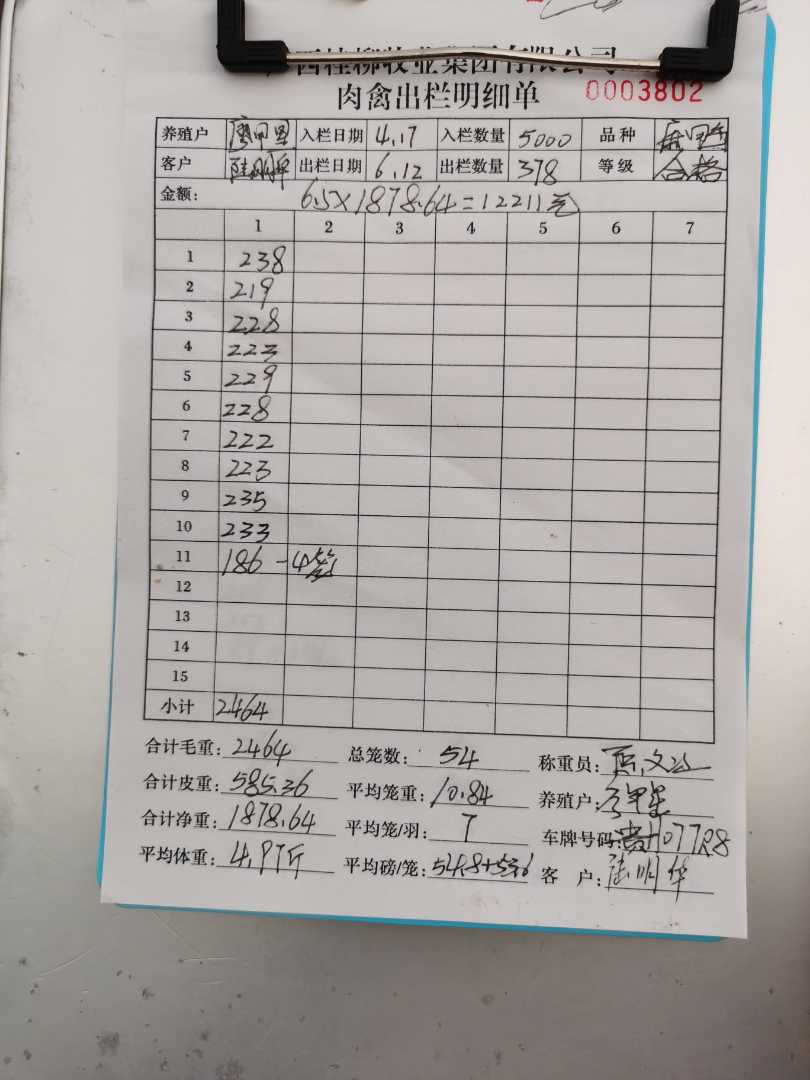 西桂柳牧业集团有限公司
肉禽出栏明细单 0003802
养殖户 入栏日期 4.17 入栏数量 5000 品种
客户 出栏日期 6.12 出栏数量 378 等级 合格
金额: 6.5×1878.64=12211元
1 2 3 4 5 6 7
1 238
2 219
3 228
4 223
5 229
6 228
7 222
8 223
9 235
10 233
11 186 -4笼
12
13
14
15
小计 2464
合计毛重: 2464 总笼数: 54 称重员:
合计皮重: 585.36 平均笼重: 10.84 养殖户:
合计净重: 1878.64 平均笼/羽: 7 车牌号码: H077R8
平均体重: 4.97斤 平均磅/笼: 54.8+53.6 客 户: 陆明华